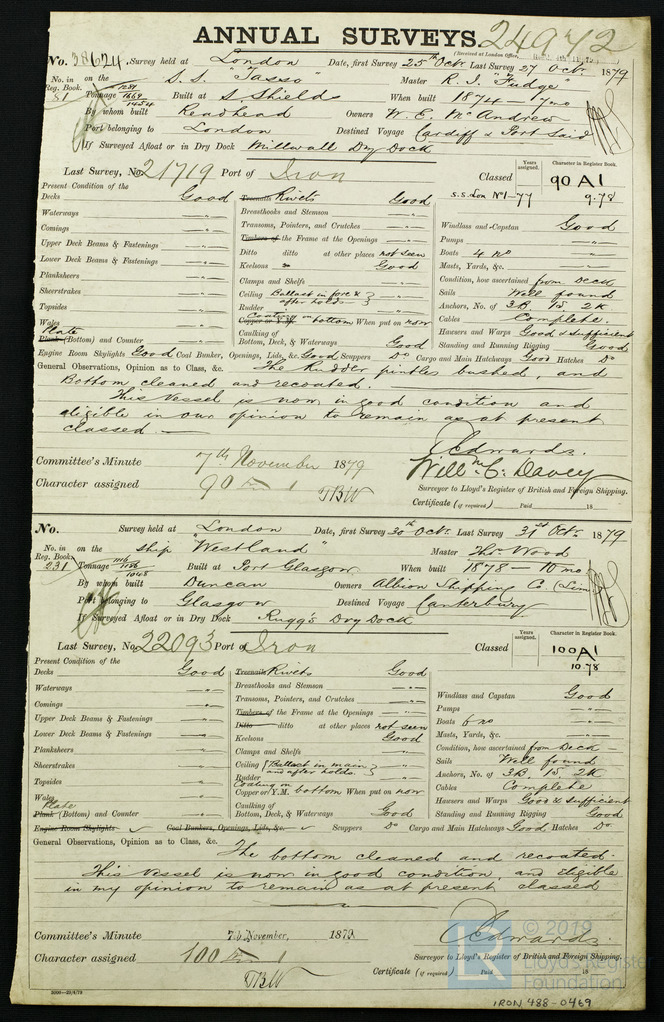 ANNUAL SURVEYS. 24972
(Received at London Office,
No. 38624, Survey held at London Date, first Survey 25th Octr. Last Survey 27 Octr. 1879
No. in Reg. Book. 81 on the S.S. "Tasso" Master R. J. "Fudge"
Tonnage 1669 1454 Built at S Shields When built 1874 - 7 mo
By whom built Readhead Owners W. E. McAndrew
Port belonging to London Destined Voyage Cardiff & Port Said
If Surveyed Afloat or in Dry Dock Millwall Dry Dock
Last Survey, No. 21719 Port of Iron Classed Years assigned. Character in Register Book. 90 A1
S.S. Lon No 1-77 9.78
Present Condition of the
Decks Good Treenails Rivets Good
Waterways " Breasthooks and Stemson "
Comings " Transoms, Pointers, and Crutches " Windlass and Capstan Good
Upper Deck Beams & Fastenings " Timbers of the Frame at the Openings " Pumps "
Lower Deck Beams & Fastenings " Ditto ditto at other places not seen Boats 4 no "
Planksheers " Keelsons Good Masts, Yards, &c. "
Sheerstrakes " Clamps and Shelfs " Condition, how ascertained from Deck
Topsides " Ceiling Ballast in fore & after holds Sails Well found
Wales " Rudder " Anchors, No. of 3B. 1S. 2K.
Plate Plank (Bottom) and Counter " Coating Copper or Y.M. on bottom When put on now Cables Complete.
Caulking of Bottom, Deck, & Waterways Good Hawsers and Warps Good & sufficient
Standing and Running Rigging Good
Engine Room Skylights Good Coal Bunker, Openings, Lids, &c. Good Scuppers Do Cargo and Main Hatchways Good Hatches Do
General Observations, Opinion as to Class, &c. The Rudder pintles bushed, and
Bottom cleaned and recoated.
This Vessel is now in good condition and
eligible in our opinion to remain as at present
classed. —
J Edwards.
Committee's Minute 7th November 1879 Will m C. Davey
Character assigned 90 A 1 Surveyor to Lloyd's Register of British and Foreign Shipping.
TBW Certificate (if required) Paid 18
No. Survey held at London Date, first Survey 30th Octr. Last Survey 31st Octr. 1879
No. in Reg. Book. 231 on the Ship "Westland" Master Thos. Wood
Tonnage 1116 1048 Built at Port Glasgow When built 1878 - 10 mo
By whom built Duncan Owners Albion Shipping Co. (Lim)
Port belonging to Glasgow Destined Voyage Canterbury
If Surveyed Afloat or in Dry Dock Rugg's Dry Dock
Last Survey, No. 22093 Port of Iron Classed Years assigned. Character in Register Book. 100 A1
10.78
Present Condition of the
Decks Good Treenails Rivets Good
Waterways " Breasthooks and Stemson "
Comings " Transoms, Pointers, and Crutches " Windlass and Capstan Good
Upper Deck Beams & Fastenings " Timbers of the Frame at the Openings " Pumps "
Lower Deck Beams & Fastenings " Ditto ditto at other places not seen Boats 6 no "
Planksheers " Keelsons Good Masts, Yards, &c. "
Sheerstrakes " Clamps and Shelfs " Condition, how ascertained from Deck
Topsides " Ceiling Ballast in main and after holds. Sails Well found
Wales " Rudder " Anchors, No. of 3B. 1S. 2K
Plate Plank (Bottom) and Counter " Coating on Copper or Y.M. bottom When put on now Cables Complete
Caulking of Bottom, Deck, & Waterways Good Hawsers and Warps Good & sufficient
Standing and Running Rigging Good
Engine Room Skylights Coal Bunkers, Openings, Lids, &c. Scuppers Do Cargo and Main Hatchways Good Hatches Do.
General Observations, Opinion as to Class, &c.
The bottom cleaned and recoated.
This Vessel is now in good condition, and eligible
in my opinion to remain as at present classed
Committee's Minute 7th November, 1879 J Edwards.
Character assigned 100 A 1 Surveyor to Lloyd's Register of British and Foreign Shipping.
TBW Certificate (if required) Paid 18
3000—29/4/79
© 2019
Lloyd's Register
Foundation
LR
IRON 488-0469